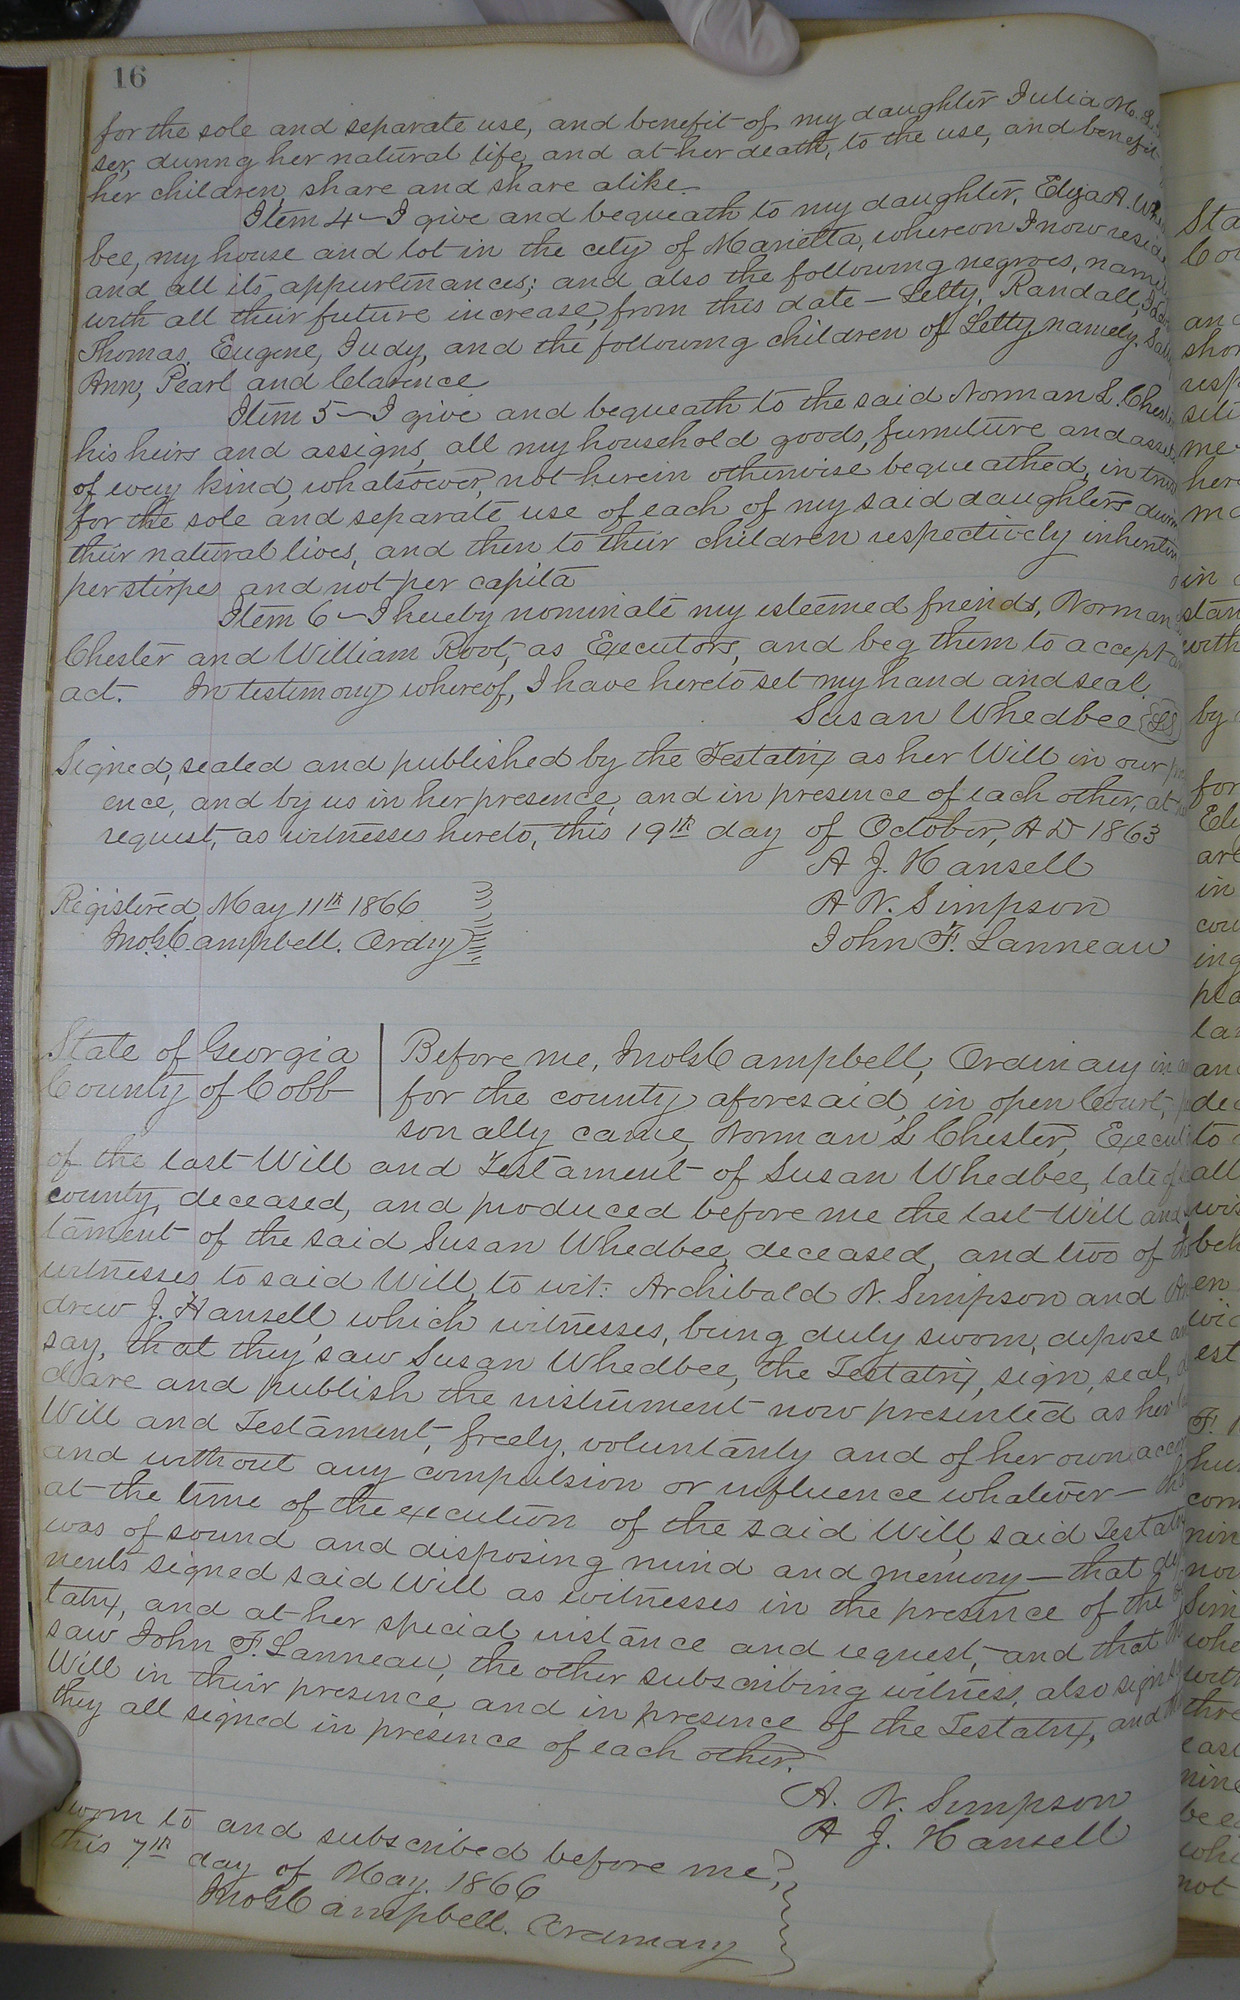 16
for the sole and separate use, and benefit of my daughter Julia M.
ser, during her natural life, and at her death, to the use, and benefit
her children, share and share alike.
Item 4 — I give and bequeath to my daughter, Eliza A.
bee, my house and lot in the city of Marietta, whereon I now reside
and all its appurtenances; and also the following negroes, namely
with all their future increase, from this date — Letty, Randall,
Thomas, Eugene, Judy, and the following children of Letty namely.
Ann, Pearl and Clarence
Item 5 — I give and bequeath to the said Norman L. Chest
his heirs and assigns, all my household goods, furniture and
of every kind, whatsoever, not herein otherwise bequeathed, in trust
for the sole and separate use of each of my said daughters during
their natural lives, and then to their children respectively inheriting
per stirpes and not per capita
Item 6 — I hereby nominate my esteemed friends, Norman
Chester and William Root, as Executors, and beg them to accept
act. In testimony whereof, I have hereto set my hand and seal.
Susan Whedbee LS
Signed, sealed and published by the Testatrix as her Will in our pres
ence, and by us in her presence, and in presence of each other, at
request, as witnesses hereto, this 19th day of October, A D 1863
A J. Hansell
Registered May 11th 1866
A N. Simpson
Jno. G. Campbell. Ordry
John F. Lanneau
State of Georgia
County of Cobb
Before me, Jno G Campbell, Ordinary in
for the county aforesaid, in open Court,
sonally came, Norman L Chester, Execut
of the last Will and Testament of Susan Whedbee, late of
county, deceased, and produced before me the last Will and
tament of the said Susan Whedbee, deceased, and two of the
witnesses to said Will, to wit: Archibald N. Simpson and An
drew J. Hansell which witnesses, being duly sworn, depose and
say, that they saw Susan Whedbee, the Testatrix, sign, seal,
clare and publish the instrument now presented as her
Will and Testament, freely, voluntarily and of her own accord
and without any compulsion or influence whatever —
at the time of the execution of the said Will, said Testatrix
was of sound and disposing mind and memory — that
nents signed said Will as witnesses in the presence of the
tatrix, and at her special instance and request, and that
saw John F. Lanneau, the other subscribing witness, also sign
Will in their presence, and in presence of the Testatrix, and
they all signed in presence of each other.
A. N. Simpson
A J. Hansell
Sworn to and subscribed before me,
this 7th day of May. 1866
Jno G Campbell. Ordinary